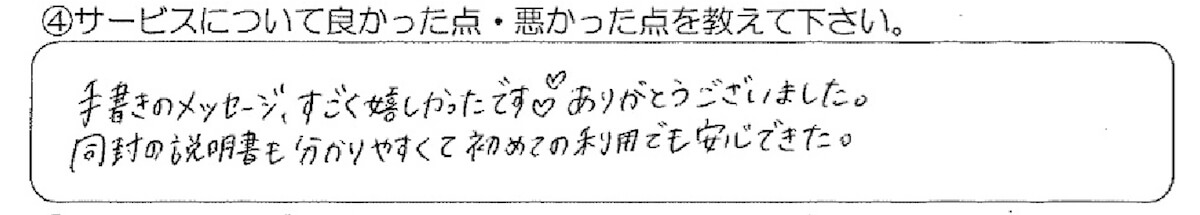 ④サービスについて良かった点・悪かった点を教えて下さい。
手書きのメッセージ、すごく嬉しかったです♡♡ありがとうございました。
同封の説明書も分かりやすくて初めての利用でも安心できた。